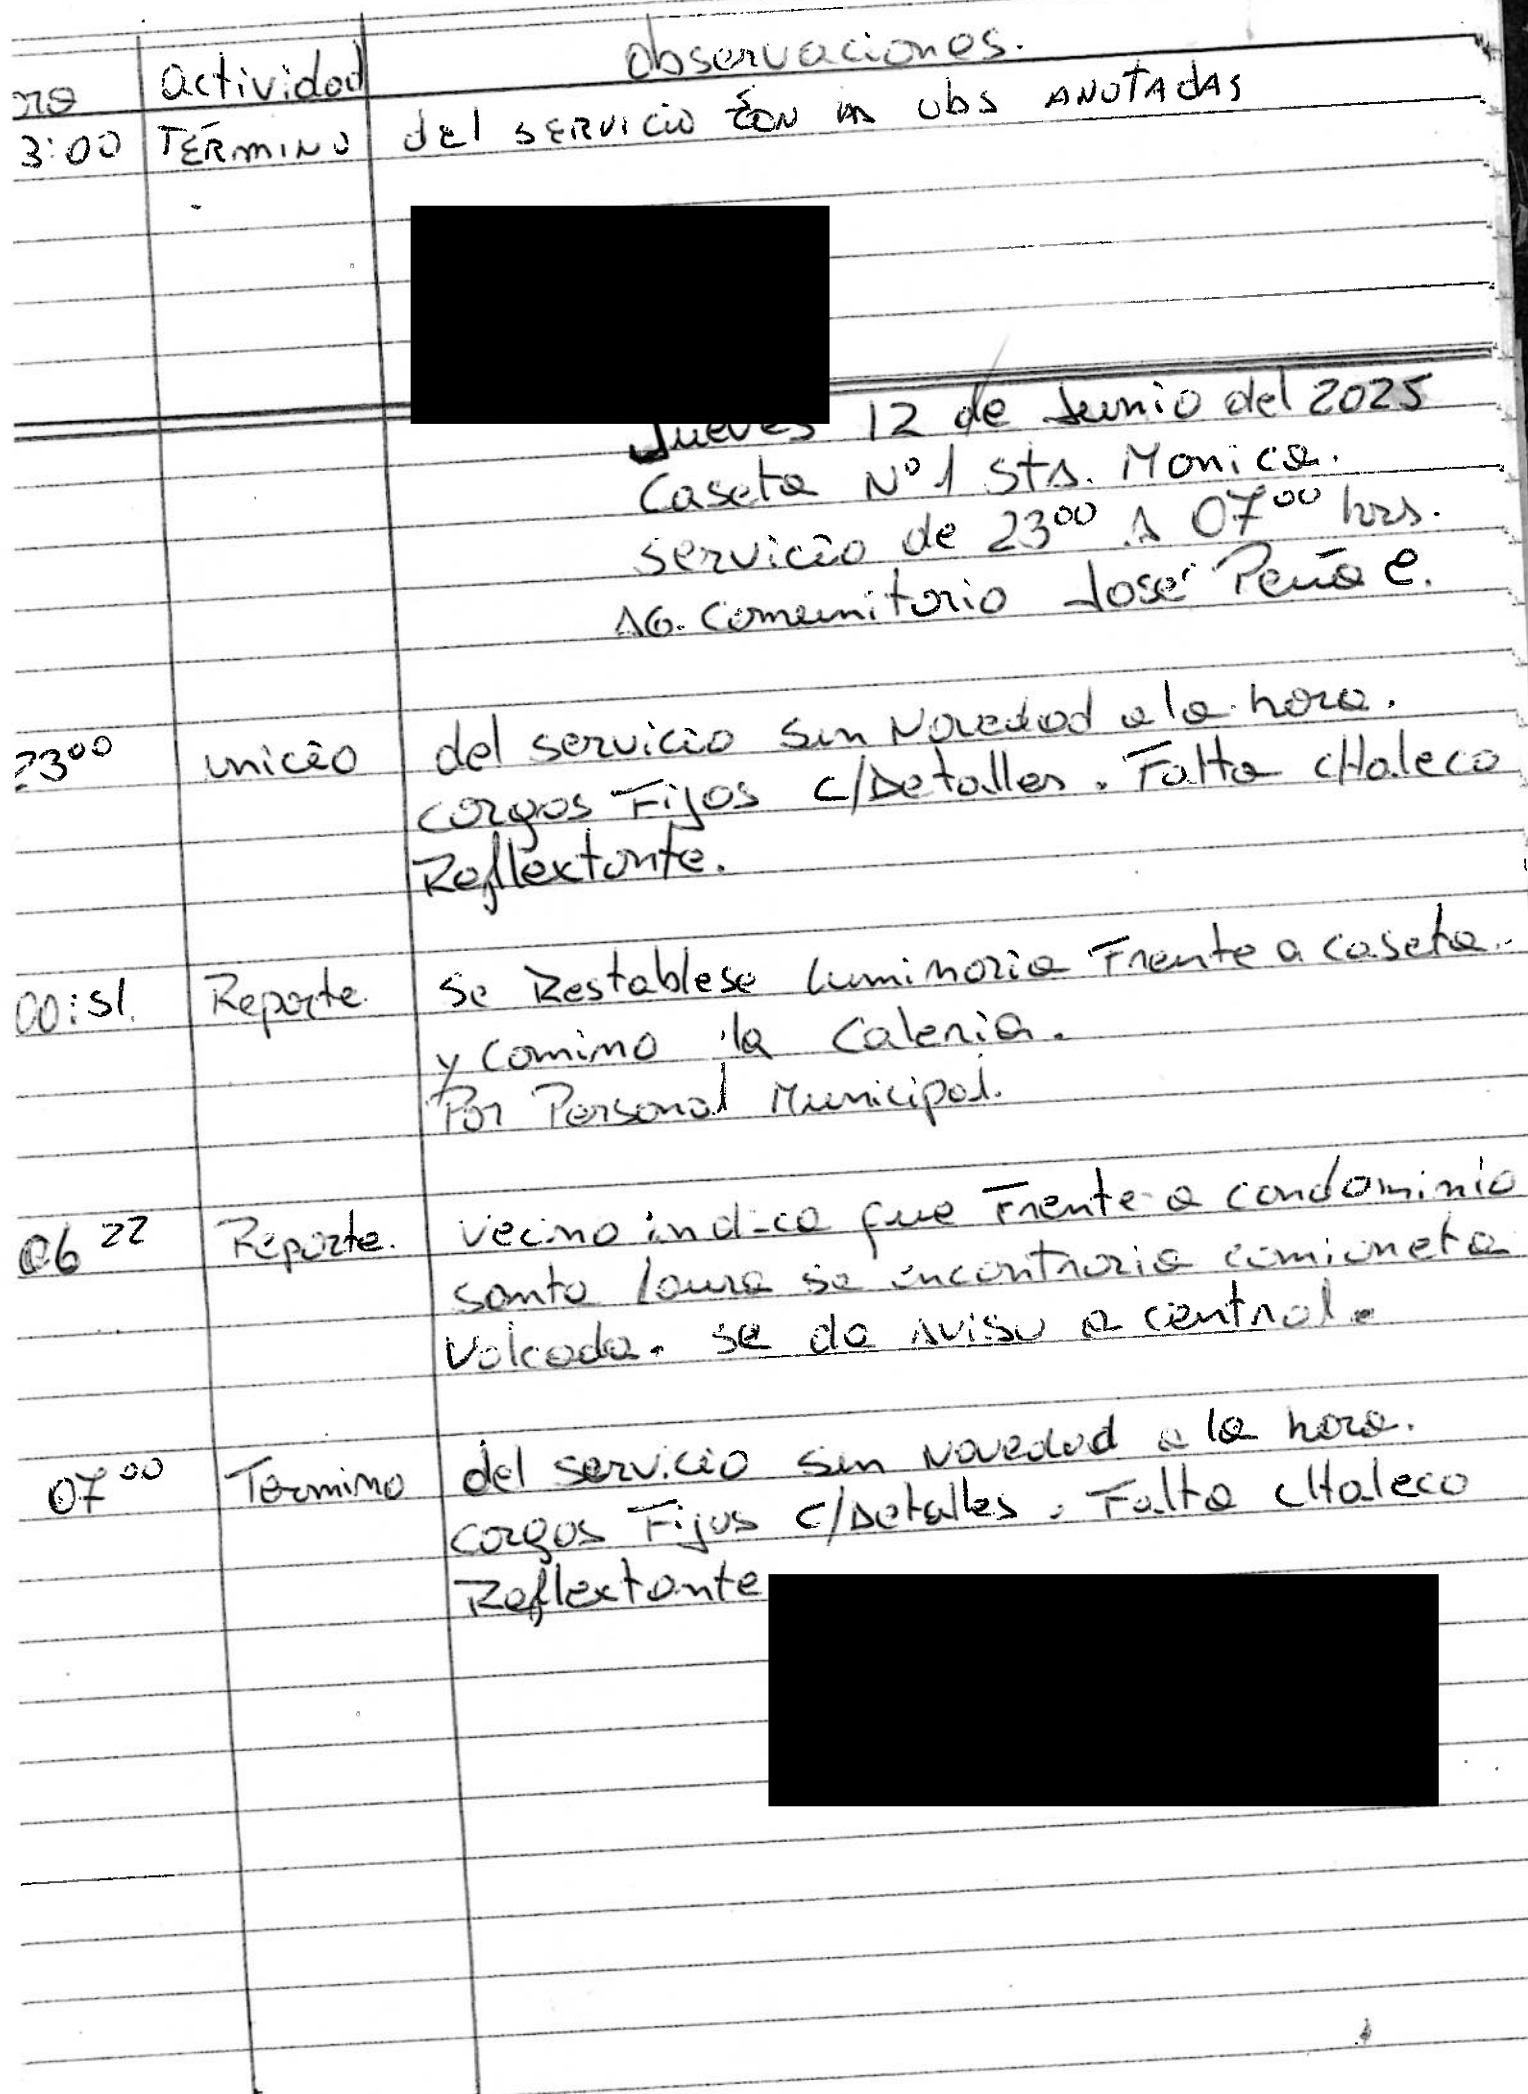 ora actividad observaciones.
3:00 TÉRMINO del SERVICIO CON las obs ANOTADAS
Jueves 12 de Junio del 2025
Caseta N° 1 Sta. Monica.
servicio de 23⁰⁰ A 07⁰⁰ hrs.
AG. Comunitario José Peña C.
23⁰⁰ inicio del servicio sin Novedad a la hora.
cargos Fijos c/Detalles. Falta cHaleco
Reflextante.
00:51. Reporte. se Restablese luminaria Frente a caseta.
y camino la Caleria.
Por Personal Municipal.
06²² Reporte. vecino indica que Frente a condominio
santa laura se encontraria camioneta
volcada. se da aviso a central.
07⁰⁰ Termino del servicio sin novedad a la hora.
cargos Fijos c/Detalles. Falta cHaleco
Reflextante